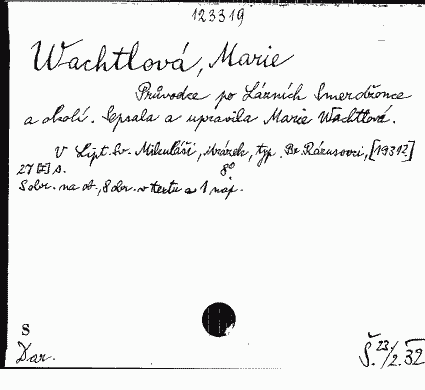 123319
Wachtlová, Marie
Průvodce po Lázních Smerdžonce
a okolí. Sepsala a upravila Marie Wachtlová.
V Lipt. Sv. Mikuláši, Mrázek, typ. Br. Rázusovci, [1931?]
27 [I] s. 8°.
S obr. na ob., 8 obr. v textu a 1 map.
S
Dar.
Š. 23/2. 32